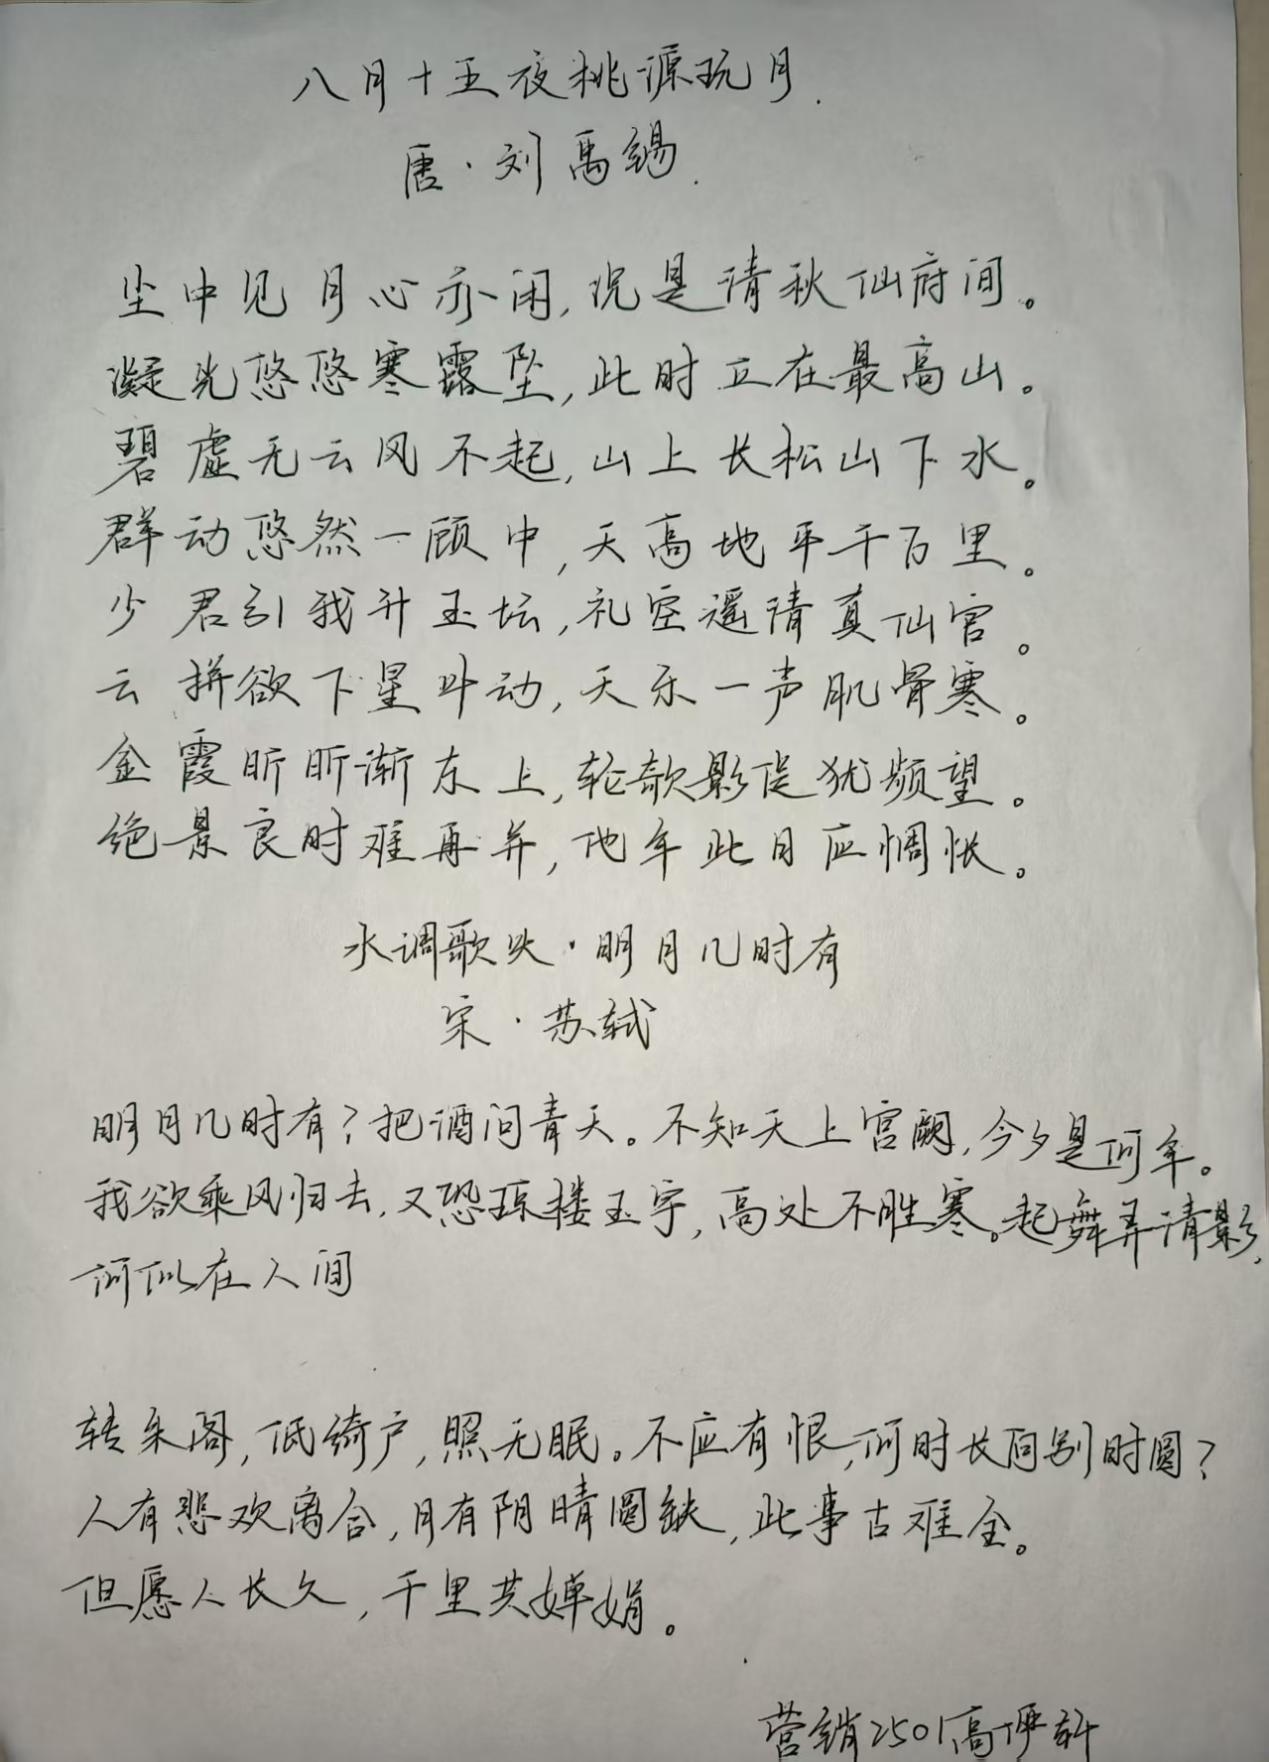 八月十五夜桃源玩月.
唐·刘禹锡.
尘中见月心亦闲,况是清秋仙府间。
凝光悠悠寒露坠,此时立在最高山。
碧虚无云风不起,山上长松山下水。
群动悠然一顾中,天高地平千万里。
少君引我升玉坛,礼空遥请真仙官。
云拼欲下星斗动,天乐一声肌骨寒。
金霞昕昕渐东上,轮欹影促犹频望。
绝景良时难再并,他年此日应惆怅。
水调歌头·明月几时有
宋·苏轼
明月几时有?把酒问青天。不知天上宫阙,今夕是何年。
我欲乘风归去,又恐琼楼玉宇,高处不胜寒。起舞弄清影,
何似在人间
转朱阁,低绮户,照无眠。不应有恨,何时长向别时圆?
人有悲欢离合,月有阴晴圆缺,此事古难全。
但愿人长久,千里共婵娟。
营销2501高坪轩